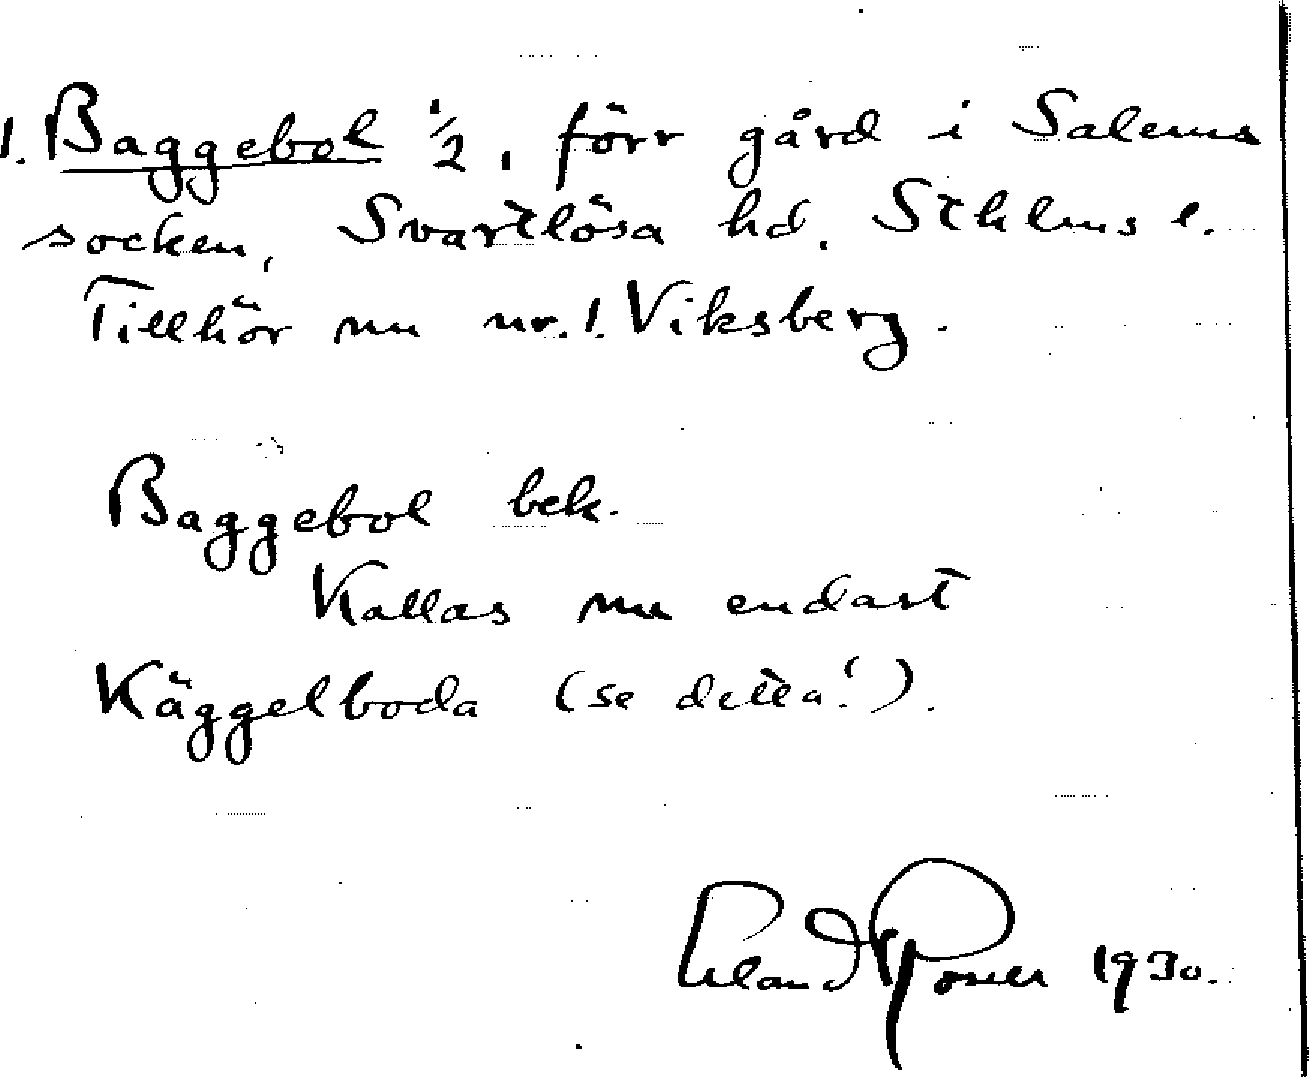 1. Baggebol 1/2, förr gård i Salems
socken, Svartlösa hd. Sthlms l.
Tillhör nu nr. 1. Viksberg.
Baggebol bek.
Kallas nu endast
Käggelboda (se detta!).
Erland Rosell 1930.